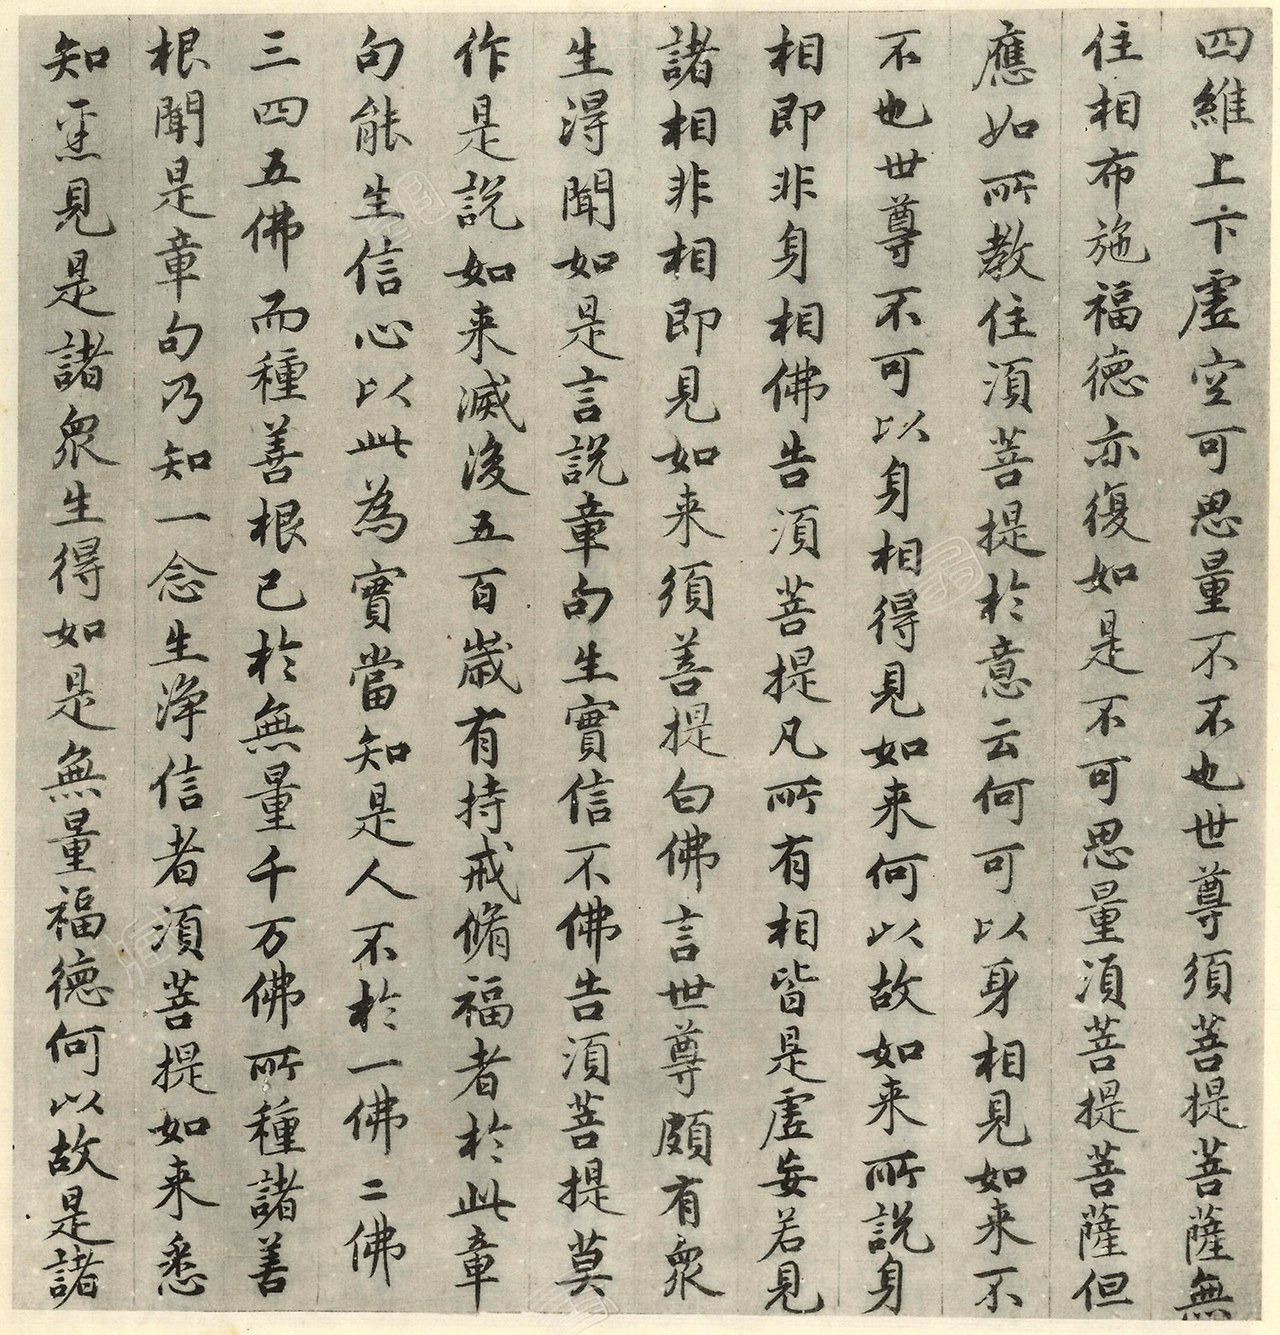 四維上下虛空可思量不不也世尊須菩提菩薩無
住相布施福德亦復如是不可思量須菩提菩薩但
應如所教住須菩提於意云何可以身相見如来不
不也世尊不可以身相得見如来何以故如来所說身
相即非身相佛告須菩提凡所有相皆是虛妄若見
諸相非相即見如来須善提白佛言世尊頗有眾
生得聞如是言說章句生實信不佛告須菩提莫
作是說如来滅後五百歲有持戒脩福者於此章
句能生信心以此為實當知是人不於一佛二佛
三四五佛而種善根已於無量千万佛所種諸善
根聞是章句乃知一念生淨信者須菩提如来悉
知見是諸眾生得如是無量福德何以故是諸